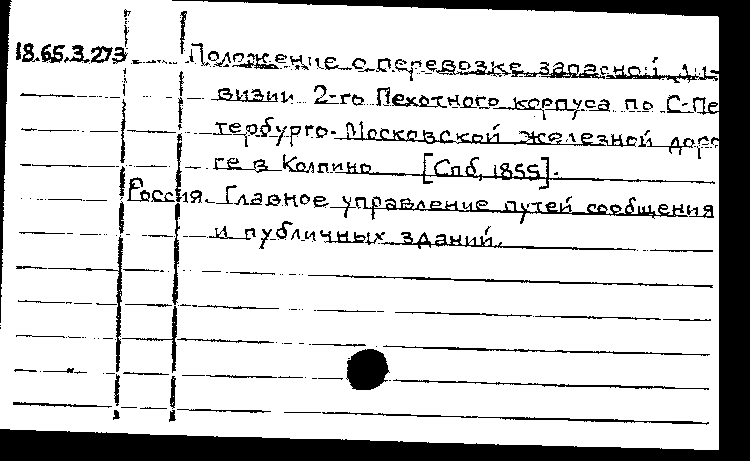 18.65.3.273 Положение о перевозке запасной ди-
визии 2-го Пехотного корпуса по С-Пе
тербурго-Московской железной доро
ге в Колпино. [Спб, 1855].
Россия. Главное управление путей сообщения
и публичных зданий.